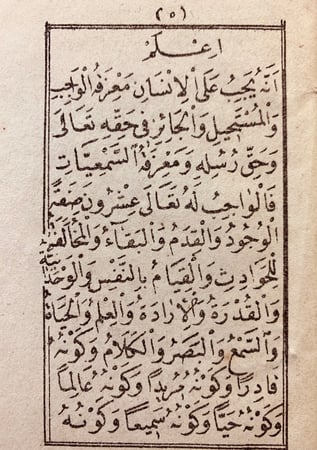 (٥)
اِعْلَمْ
أَنَّهُ يَجِبُ عَلَى الْاِنْسَانِ مَعْرِفَةُ الْوَاجِبِ
وَالْمُسْتَحِيلِ وَالْجَائِزِ فِي حَقِّهِ تَعَالَى
وَحَقِّ رُسُلِهِ وَمَعْرِفَةُ السَّمْعِيَّاتِ
فَالْوَاجِبُ لَهُ تَعَالَى عِشْرُونَ صِفَةً
الْوُجُودُ وَالْقِدَمُ وَالْبَقَاءُ وَالْمُخَالَفَةُ
لِلْحَوَادِثِ وَالْقِيَامُ بِالنَّفْسِ وَالْوَحْدَانِيَّةُ
وَالْقُدْرَةُ وَالْاِرَادَةُ وَالْعِلْمُ وَالْحَيَاةُ
وَالسَّمْعُ وَالْبَصَرُ وَالْكَلَامُ وَكَوْنُهُ
قَادِرًا وَكَوْنُهُ مُرِيدًا وَكَوْنُهُ عَالِمًا
وَكَوْنُهُ حَيًّا وَكَوْنُهُ سَمِيعًا وَكَوْنُهُ